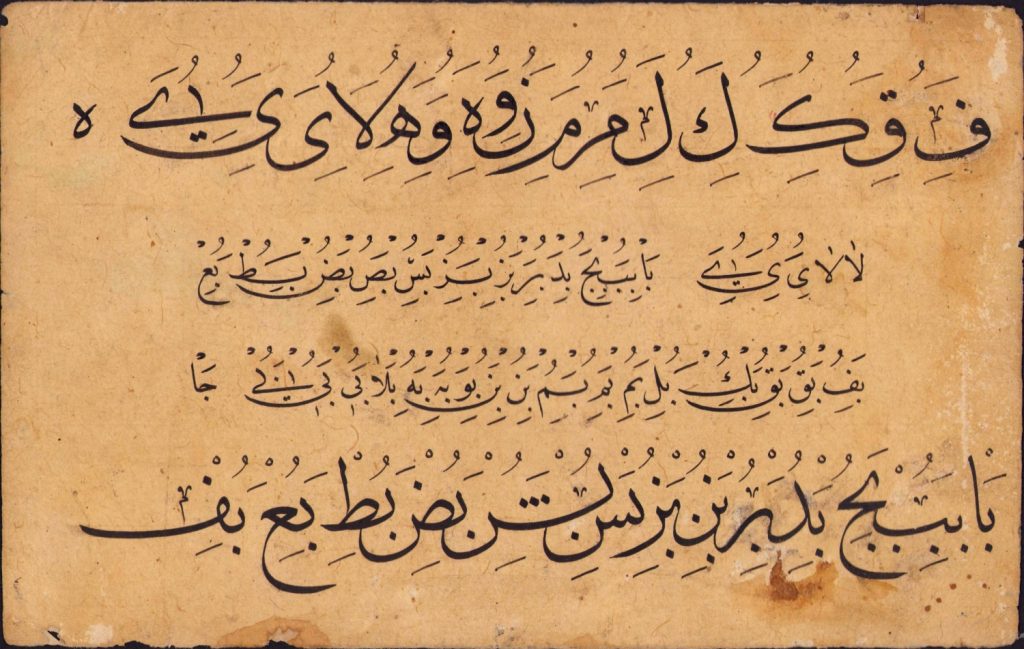 ف ق ك ك ل م م م ن و ه و ه لا ى ے ه
لا لا ى ى ے با بب بج بد بر بز بز بس بص بض بط بع
بف بق بق بك بل بم بم بم بن بن بو به به بلا بى بى بے جا
با بب بج بد بر بن بز بس بش بض بط بع بف